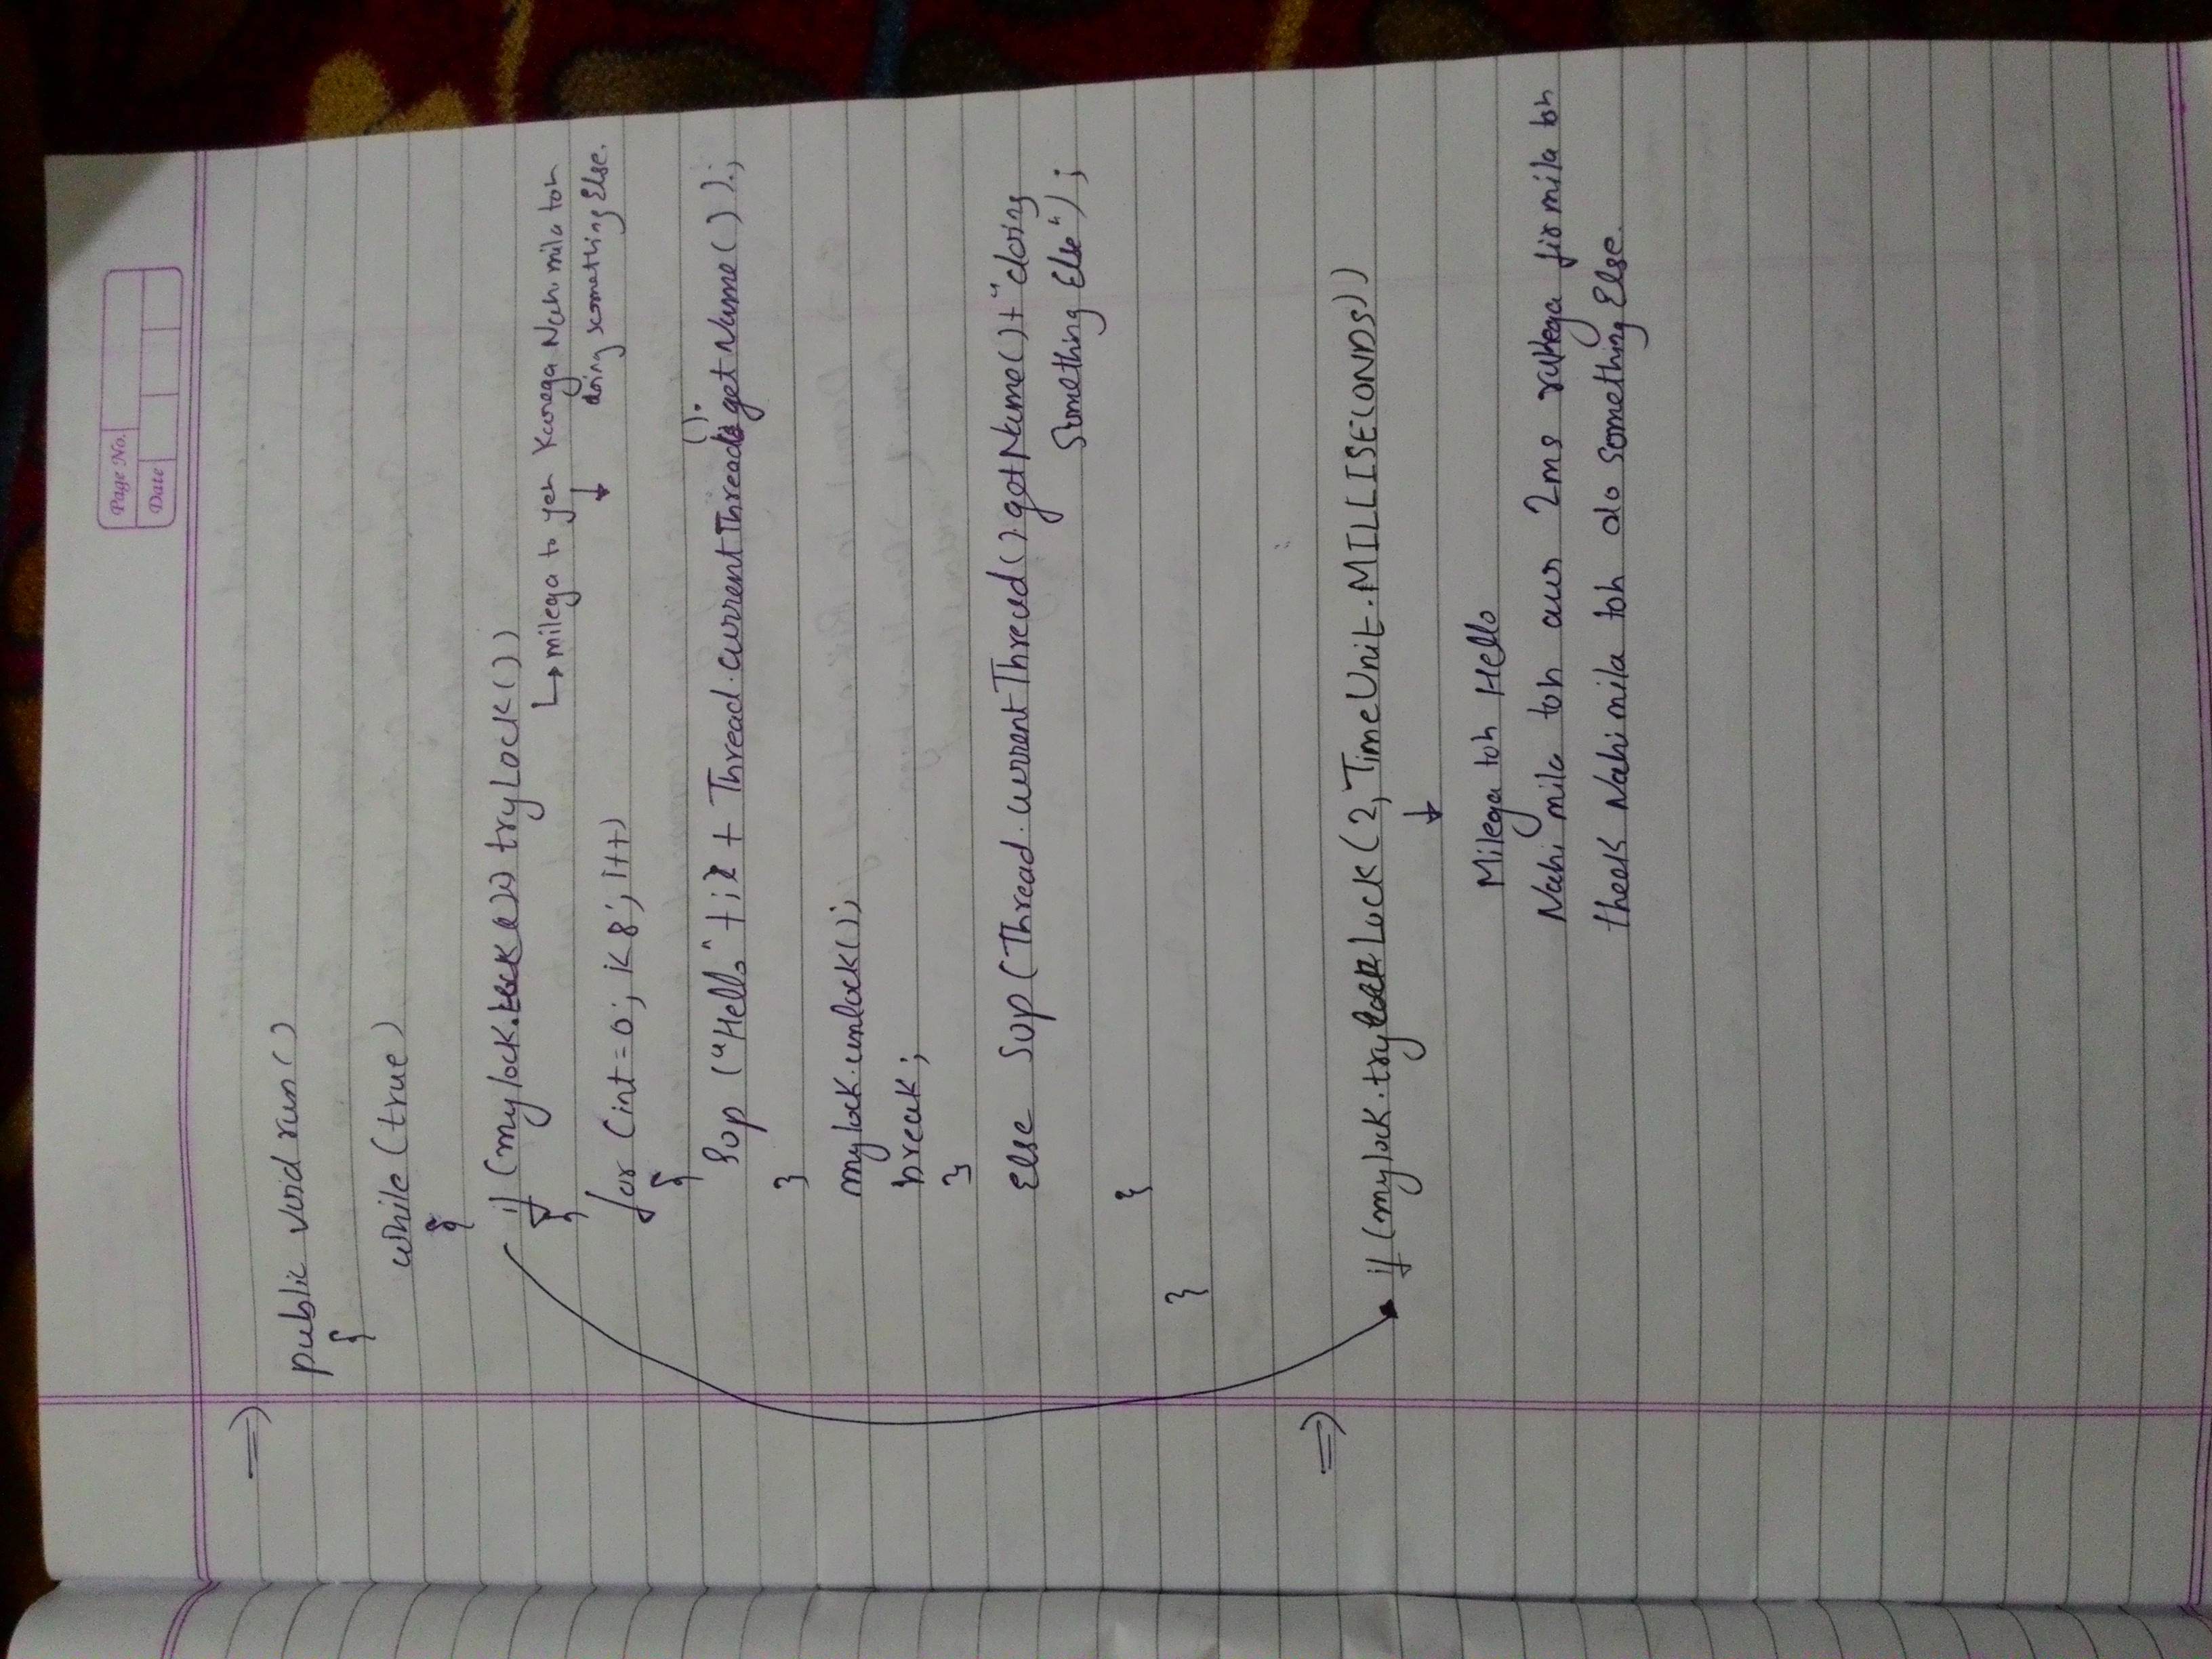 Page No.
Date
⇒
public void run()
{
while (true)
{
if (mylock. tryLock())
↳ milega to yeh Karega Nahi mila toh
↓ doing something Else.
{
for (int = 0; i<8; i++)
{
Sop ("Hello" + i + Thread.currentThread().getName());
}
mylock.unlock();
break;
}
else Sop (Thread.currentThread().getName() + "doing
Something Else");
}
}
⇒
if (mylock.tryLock(2, TimeUnit.MILLISECONDS))
↓
Milega toh Hello
Nahi mila toh aur 2ms rukega fir mila toh
theek Nahi mila toh do something Else.